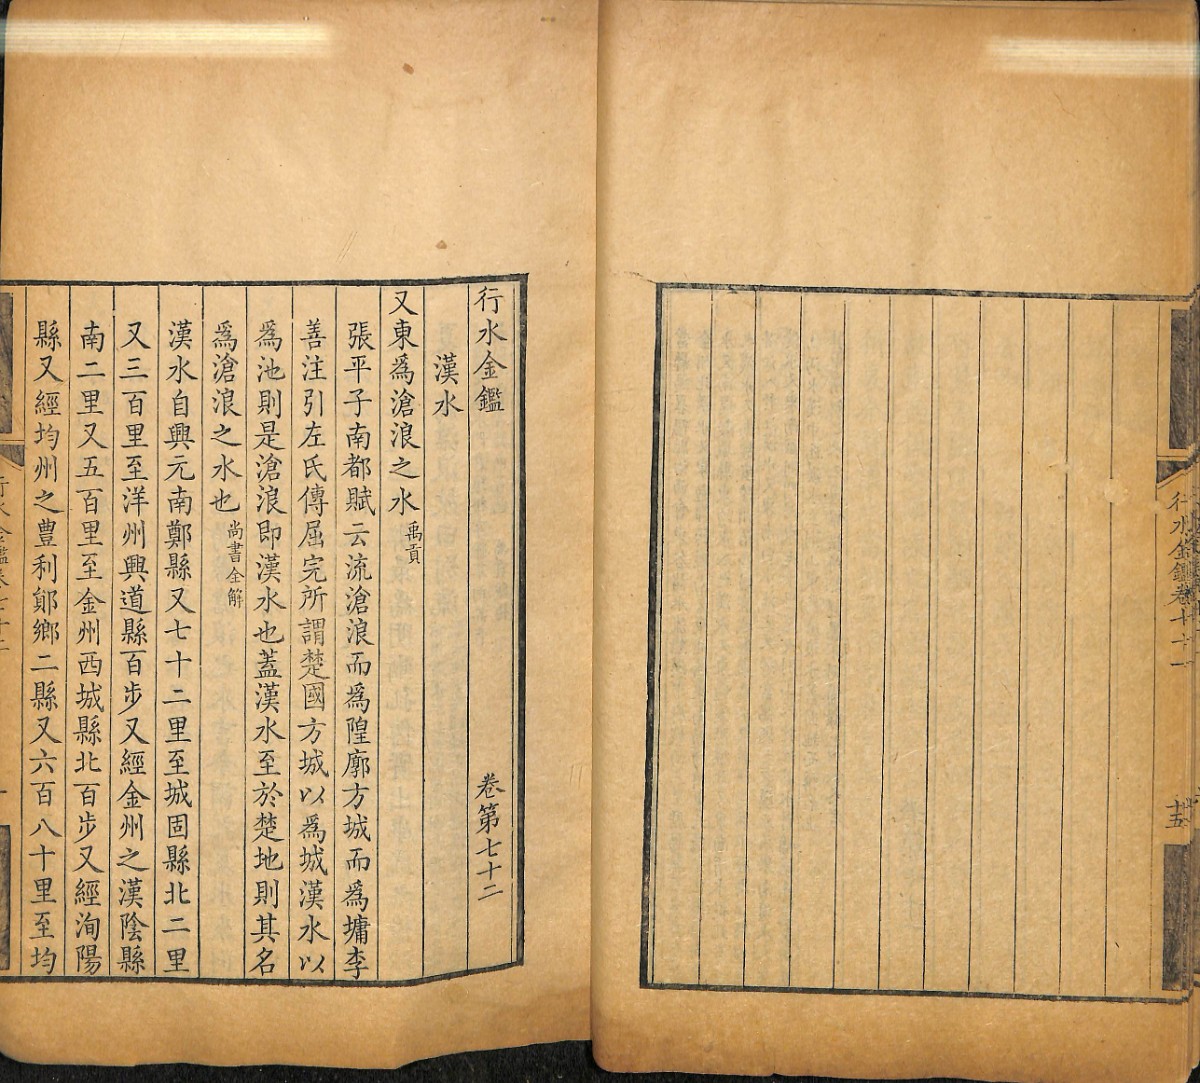 行水金鑑卷七十一
十五
行水金鑑 卷第七十二
漢水
又東爲滄浪之水禹貢
張平子南都賦云流滄浪而爲隍廓方城而爲墉李
善注引左氏傳屈完所謂楚國方城以爲城漢水以
爲池則是滄浪即漢水也蓋漢水至於楚地則其名
爲滄浪之水也尚書全解
漢水自興元南鄭縣又七十二里至城固縣北二里
又三百里至洋州興道縣百步又經金州之漢陰縣
南二里又五百里至金州西城縣北百步又經洵陽
縣又經均州之豊利鄖鄉二縣又六百八十里至均
行水金鑑卷七十二
一